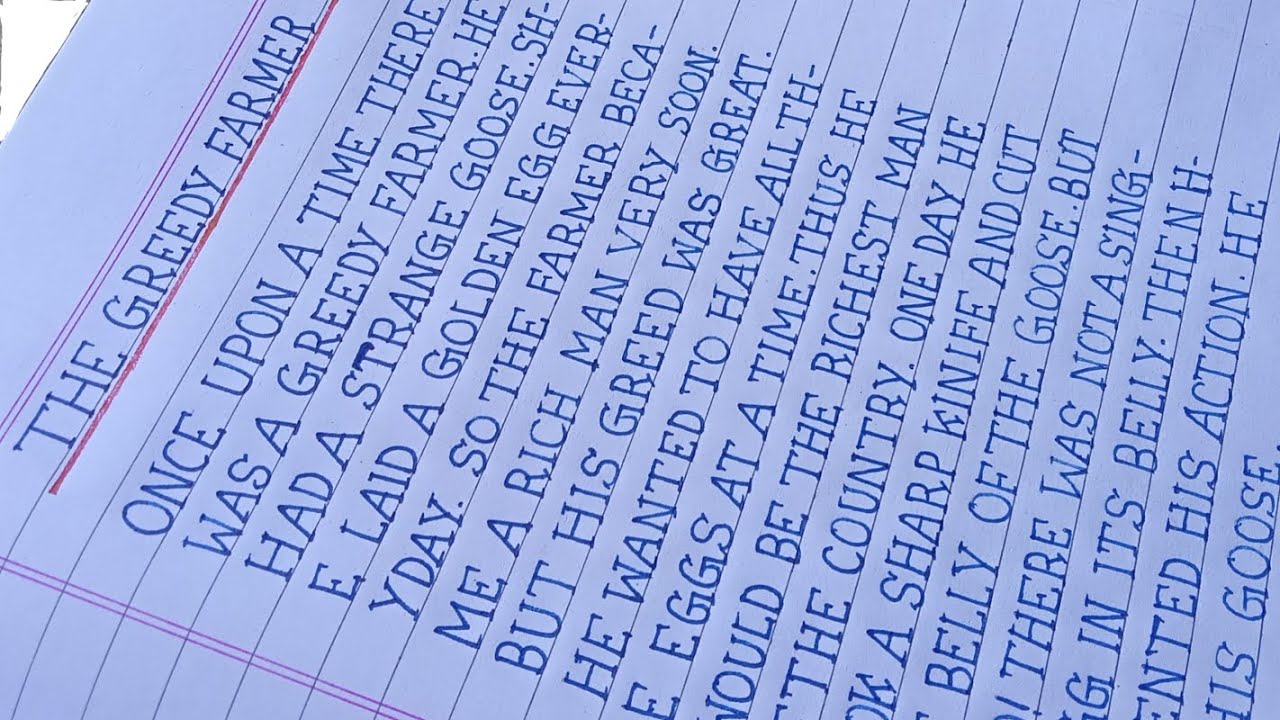 THE GREEDY FARMER
ONCE UPON A TIME THERE
WAS A GREEDY FARMER. HE
HAD A STRANGE GOOSE. SH-
E LAID A GOLDEN EGG EVER-
YDAY. SO THE FARMER BECA-
ME A RICH MAN VERY SOON.
BUT HIS GREED WAS GREAT.
HE WANTED TO HAVE ALL TH-
E EGGS AT A TIME. THUS HE
WOULD BE THE RICHEST MAN
THE COUNTRY. ONE DAY HE
OK A SHARP KINIFE AND CUT
BELLY OF THE GOOSE. BUT
! THERE WAS NOT A SING-
GG IN ITS BELLY. THEN H-
ENTED HIS ACTION. HE
HIS GOOSE